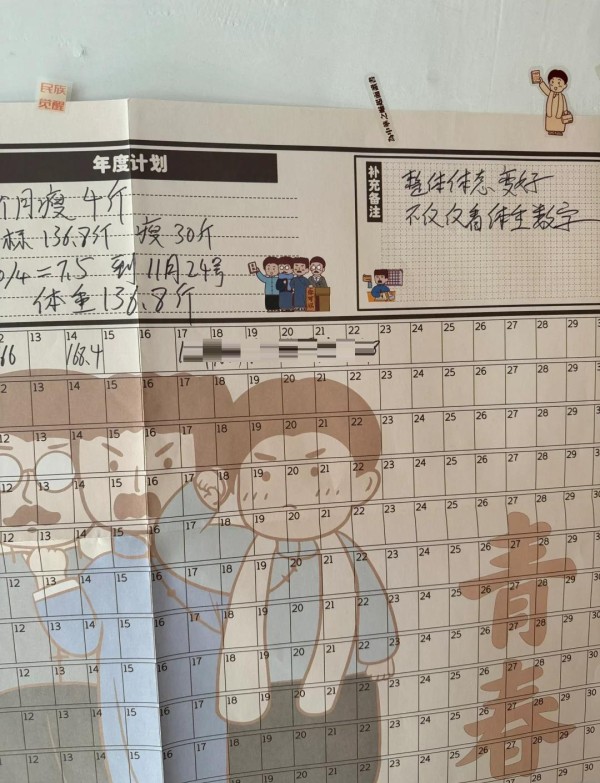 民族
觉醒
年度计划
个月瘦 4斤
标 136.8斤 瘦 30斤
0/4=7.5 到 11月24号
体重 136.8斤
补充备注
整体体态变好
不仅仅看体重数字
12 13 14 15 16 17 18 19 20 21 22 23 24 25 26 27 28 29
66 168.4
12 13 14 15 16 17 18 19 20 21 22 23 24 25 26 27 28 29
12 13 14 15 16 17 18 19 20 21 22 23 24 25 26 27 28 29
12 13 14 15 16 17 18 19 20 21 22 23 24 25 26 27 28 29
12 13 14 15 16 17 18 19 20 21 22 23 24 25 26 27 28 29 30
12 13 14 15 16 17 18 19 20 21 22 23 24 25 26 27 28 29 30
12 13 14 15 16 17 18 19 20 21 22 23 24 25 26 27 28 29 30
12 13 14 15 16 17 18 19 20 21 22 23 24 25 26 27 28 29 30
12 13 14 15 16 17 18 19 20 21 22 23 24 25 26 27 28 29 30
12 13 14 15 16 17 18 19 20 21 22 23 24 25 26 27 28 29 30
12 13 14 15 16 17 18 19 20 21 22 23 24 25 26 27 28 29 30
12 13 14 15 16 17 18 19 20 21 22 23 24 25 26 27 28 29 30
青春